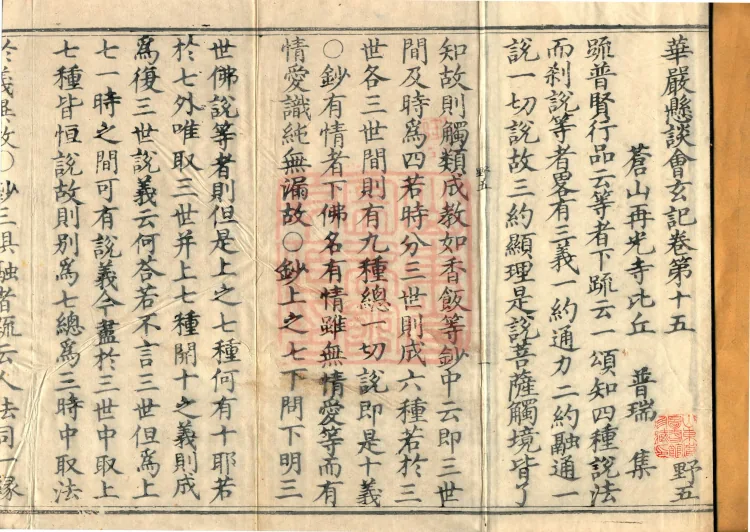 華嚴懸談會玄記卷第十五
野五
蒼山再光寺比丘 普瑞 集
䟽普賢行品云等者下䟽云一頌知四種說法
而刹說等者畧有三義一約通力二約融通一
說一切說故三約顯理是說菩薩觸境皆了
野五
知故則觸類成教如香飯等鈔中云即三世
間及時爲四若時分三世則成六種若於三
世各三世間則有九種總一切說即是十義
○鈔有情者下佛名有情雖無情愛等而有
情愛識純無漏故○鈔上之七下問下明三
世佛說等者則但是上之七種何有十耶若
於七外唯取三世并上七種開十之義則成
爲復三世說義云何答若不言三世但爲上
七一時之間可有說義今蓋於三世中取上
七種皆恒說故則別爲七總爲三時中取法
鈔三具融者䟽云人法同一緣